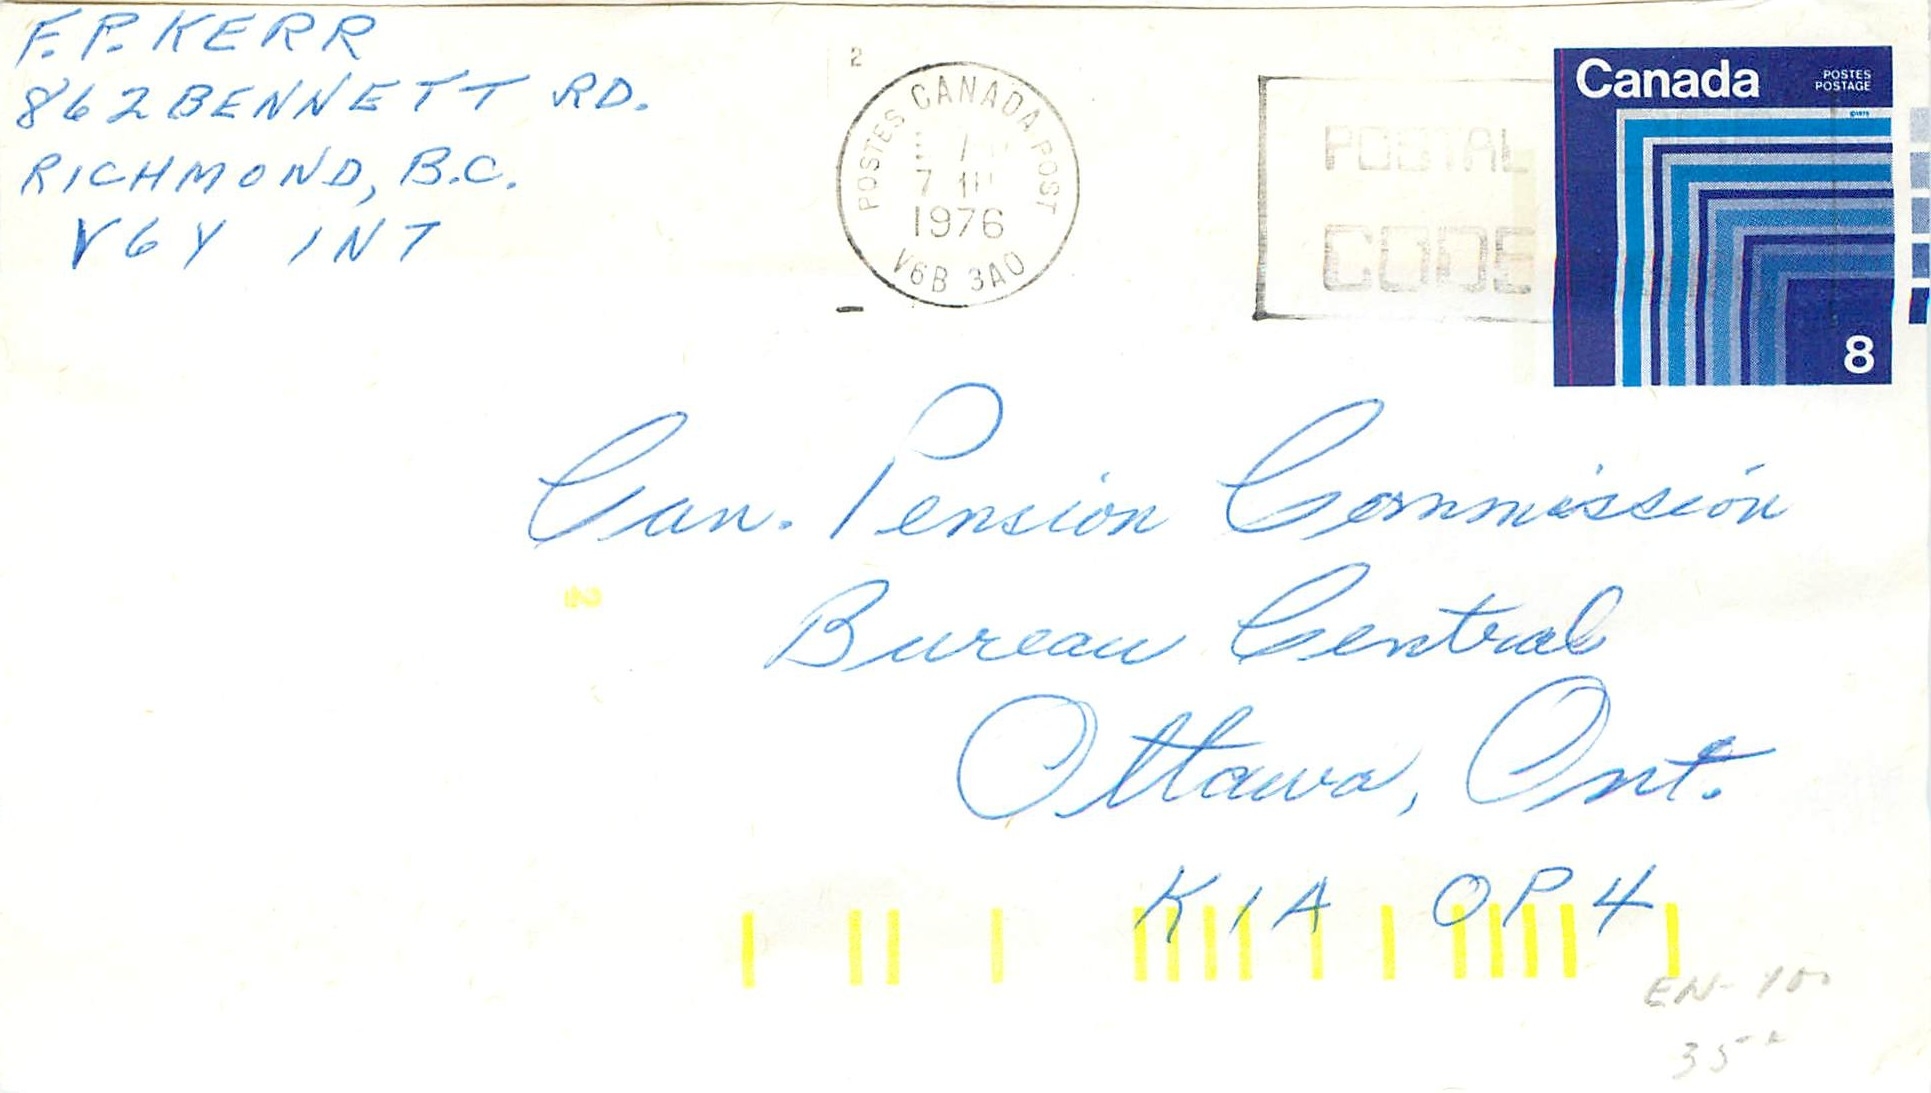 F.P. KERR
862 BENNETT RD.
RICHMOND, B.C.
V6Y 1N7
2
POSTES CANADA POST
1976
V6B 3A0
POSTAL
CODE
Canada
POSTES
POSTAGE
8
Can. Pension Commission
Bureau Central
Ottawa, Ont.
2
K1A 0P4
EN-
35